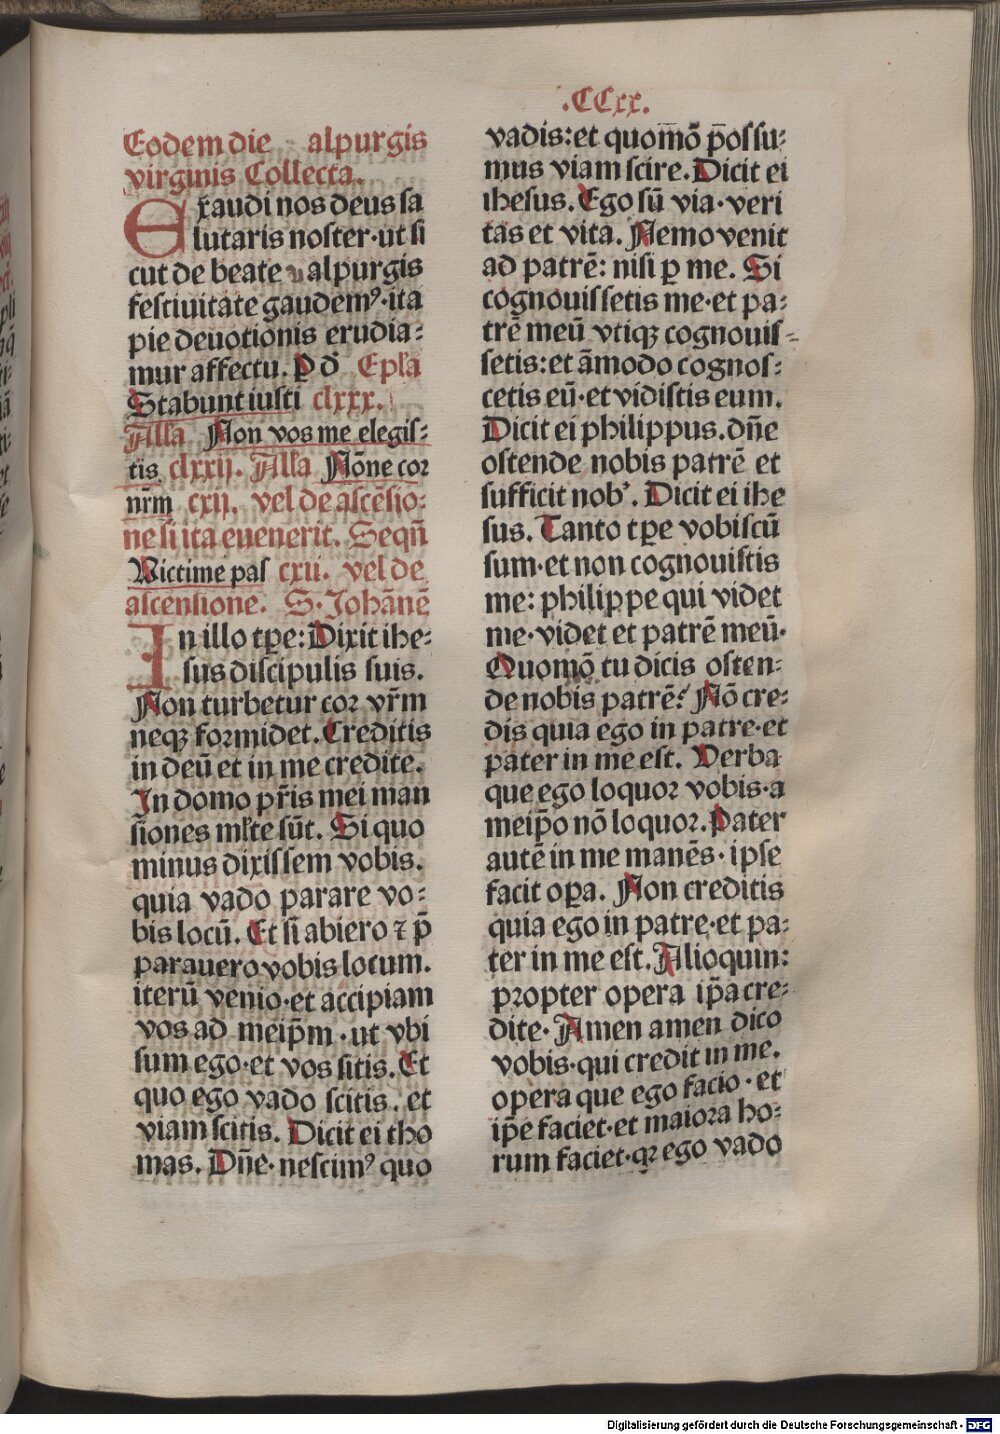 .CCxx.
Eodem die alpurgis
virginis Collecta.
Exaudi nos deus sa
lutaris noster·ut si
cut de beate alpurgis
festiuitate gaudemꝰ·ita
pie deuotionis erudia⸗
mur affectu. ꝑ dn̄ Ep̄la
Stabunt iusti clxxx.
Alla Non vos me elegis⸗
tis clxxij. Alla Nōne cor
nr̄m cxij. vel de ascēsio⸗
ne si ita euenerit. Seqn̄
Victime pas cxii. vel de
ascensione. S·Johānē
In illo tꝑe: Dixit ihe⸗
sus discipulis suis.
Non turbetur cor vr̄m
neqꝫ formidet. Creditis
in deū et in me credite.
In domo pr̄is mei man
siones ml̄te sūt. Si quo
minus dixissem vobis.
quia vado parare vo⸗
bis locū. Et si abiero ⁊ p̄
parauero vobis locum.
iterū venio·et accipiam
vos ad meip̄m·ut vbi
sum ego·et vos sitis. Et
quo ego vado scitis. et
viam scitis. Dicit ei tho
mas. Dn̄e·nescimꝰ quo
vadis: et quomō p̄ossu⸗
mus viam scire. Dicit ei
ihesus. Ego sū via·veri
tas et vita. Nemo venit
ad patrē: nisi ꝑ me. Si
cognouissetis me·et pa⸗
trē meū vtiqꝫ cognouis⸗
setis: et āmodo cognos⸗
cetis eū·et vidistis eum.
Dicit ei philippus. dn̄e
ostende nobis patrē et
sufficit nobꝰ. Dicit ei ihe
sus. Tanto tꝑe vobiscū
sum·et non cognouistis
me: philippe qui videt
me·videt et patrē meū·
Quomō tu dicis osten⸗
de nobis patrē? Nō cre⸗
dis quia ego in patre·et
pater in me est. Verba
que ego loquor vobis·a
meip̄o nō loquor. Pater
autē in me manēs·ipse
facit oꝑa. Non creditis
quia ego in patre·et pa⸗
ter in me est. Alioquin:
propter opera ip̄a cre⸗
dite·Amen amen dico
vobis·qui credit in me.
opera que ego facio·et
ip̄e faciet·et maiora ho⸗
rum faciet·qꝛ ego vado
Digitalisierung gefördert durch die Deutsche Forschungsgemeinschaft - DFG